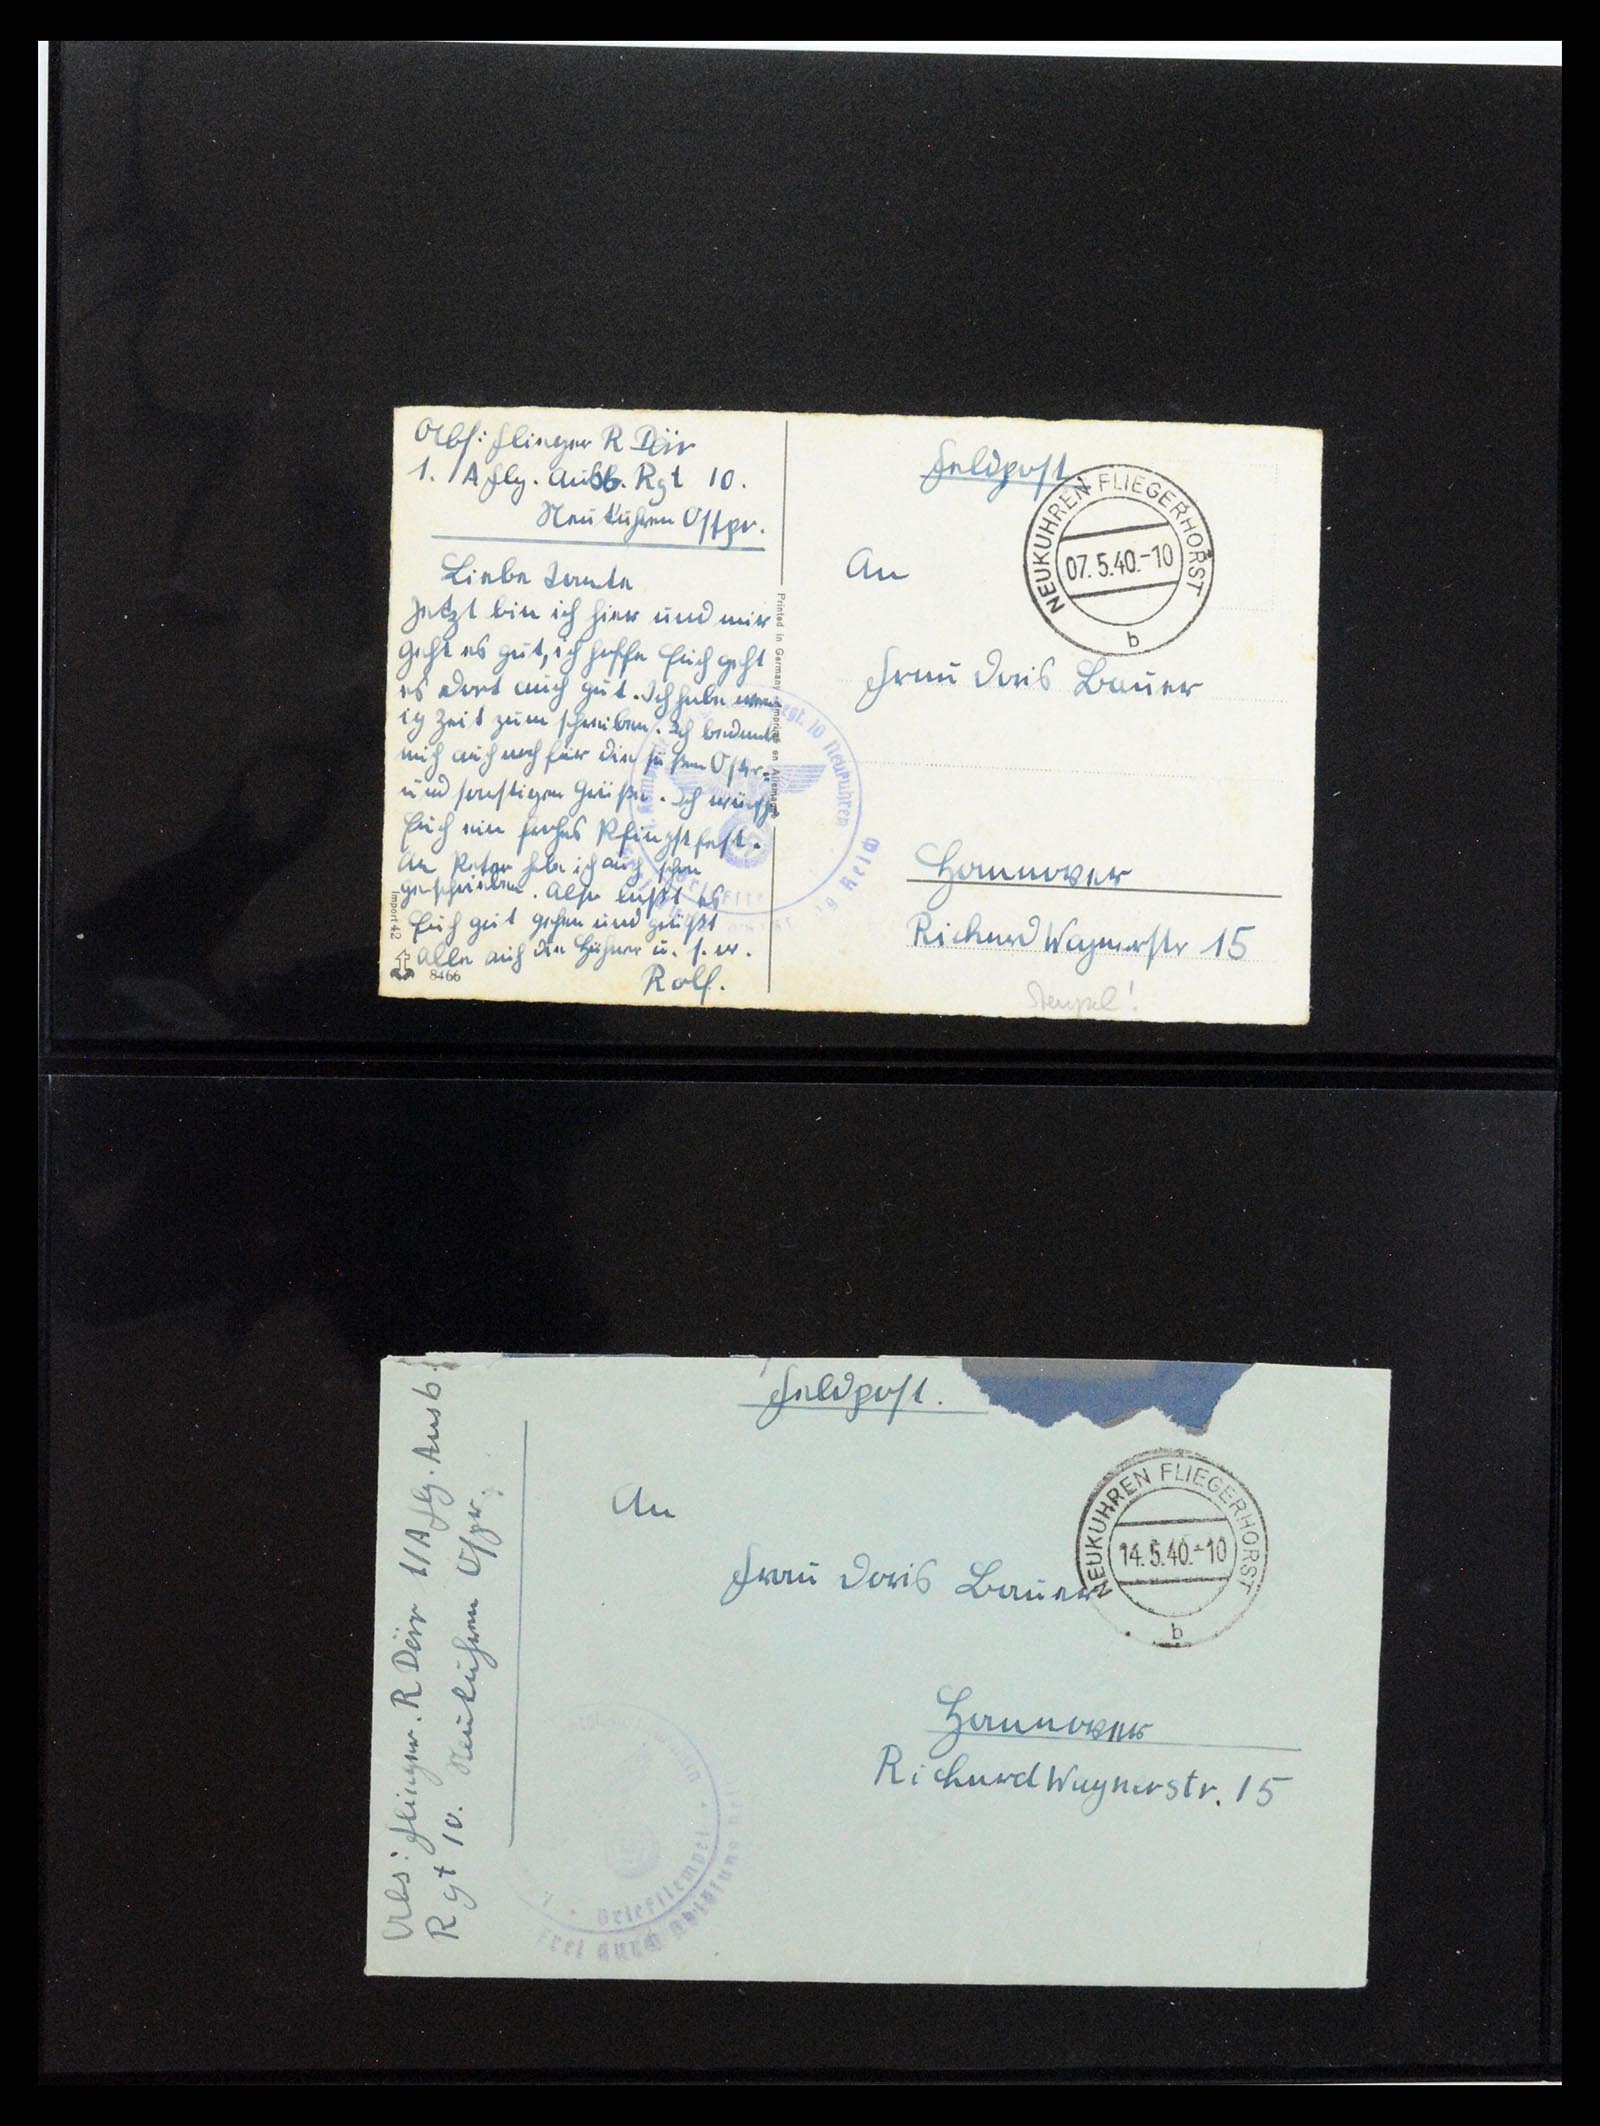 Abs: Flieger R Dörr
1. /A Flg. Ausb. Rgt 10.
Neukuhren Ostpr.
Liebe Tante
Jetzt bin ich hier und mir
geht es gut, ich hoffe Euch geht
es dort auch gut. Ich habe wen
ig Zeit zum schreiben. Ich bedanke
mich auch noch für die süßen Oster
und sonstigen Grüße. Ich wünsche
Euch ein frohes Pfingstfest.
An Peter habe ich auch schon
geschrieben. Also laßt es
Euch gut gehen und grüßt
Alle auch die Hühner u. s. w.
Rolf.
Import 42
8466
Printed in Germany Imprimé en Allemagne
Regt. 10 Neukuhren
Reich
Feldpost
NEUKUHREN FLIEGERHORST
07.5.40.-10
b
An
Frau Doris Bauer
Hannover
Richard Wagnerstr 15
Stempel!
Feldpost.
NEUKUHREN FLIEGERHORST
14.5.40.-10
b
An
Frau Doris Bauer
Hannover
Richard Wagnerstr. 15
Abs: Flieger. R Dörr 1/A Flg. Ausb.
Rgt 10. Neukuhren Ostpr.
Briefstempel
Frei durch Ablösung Reich